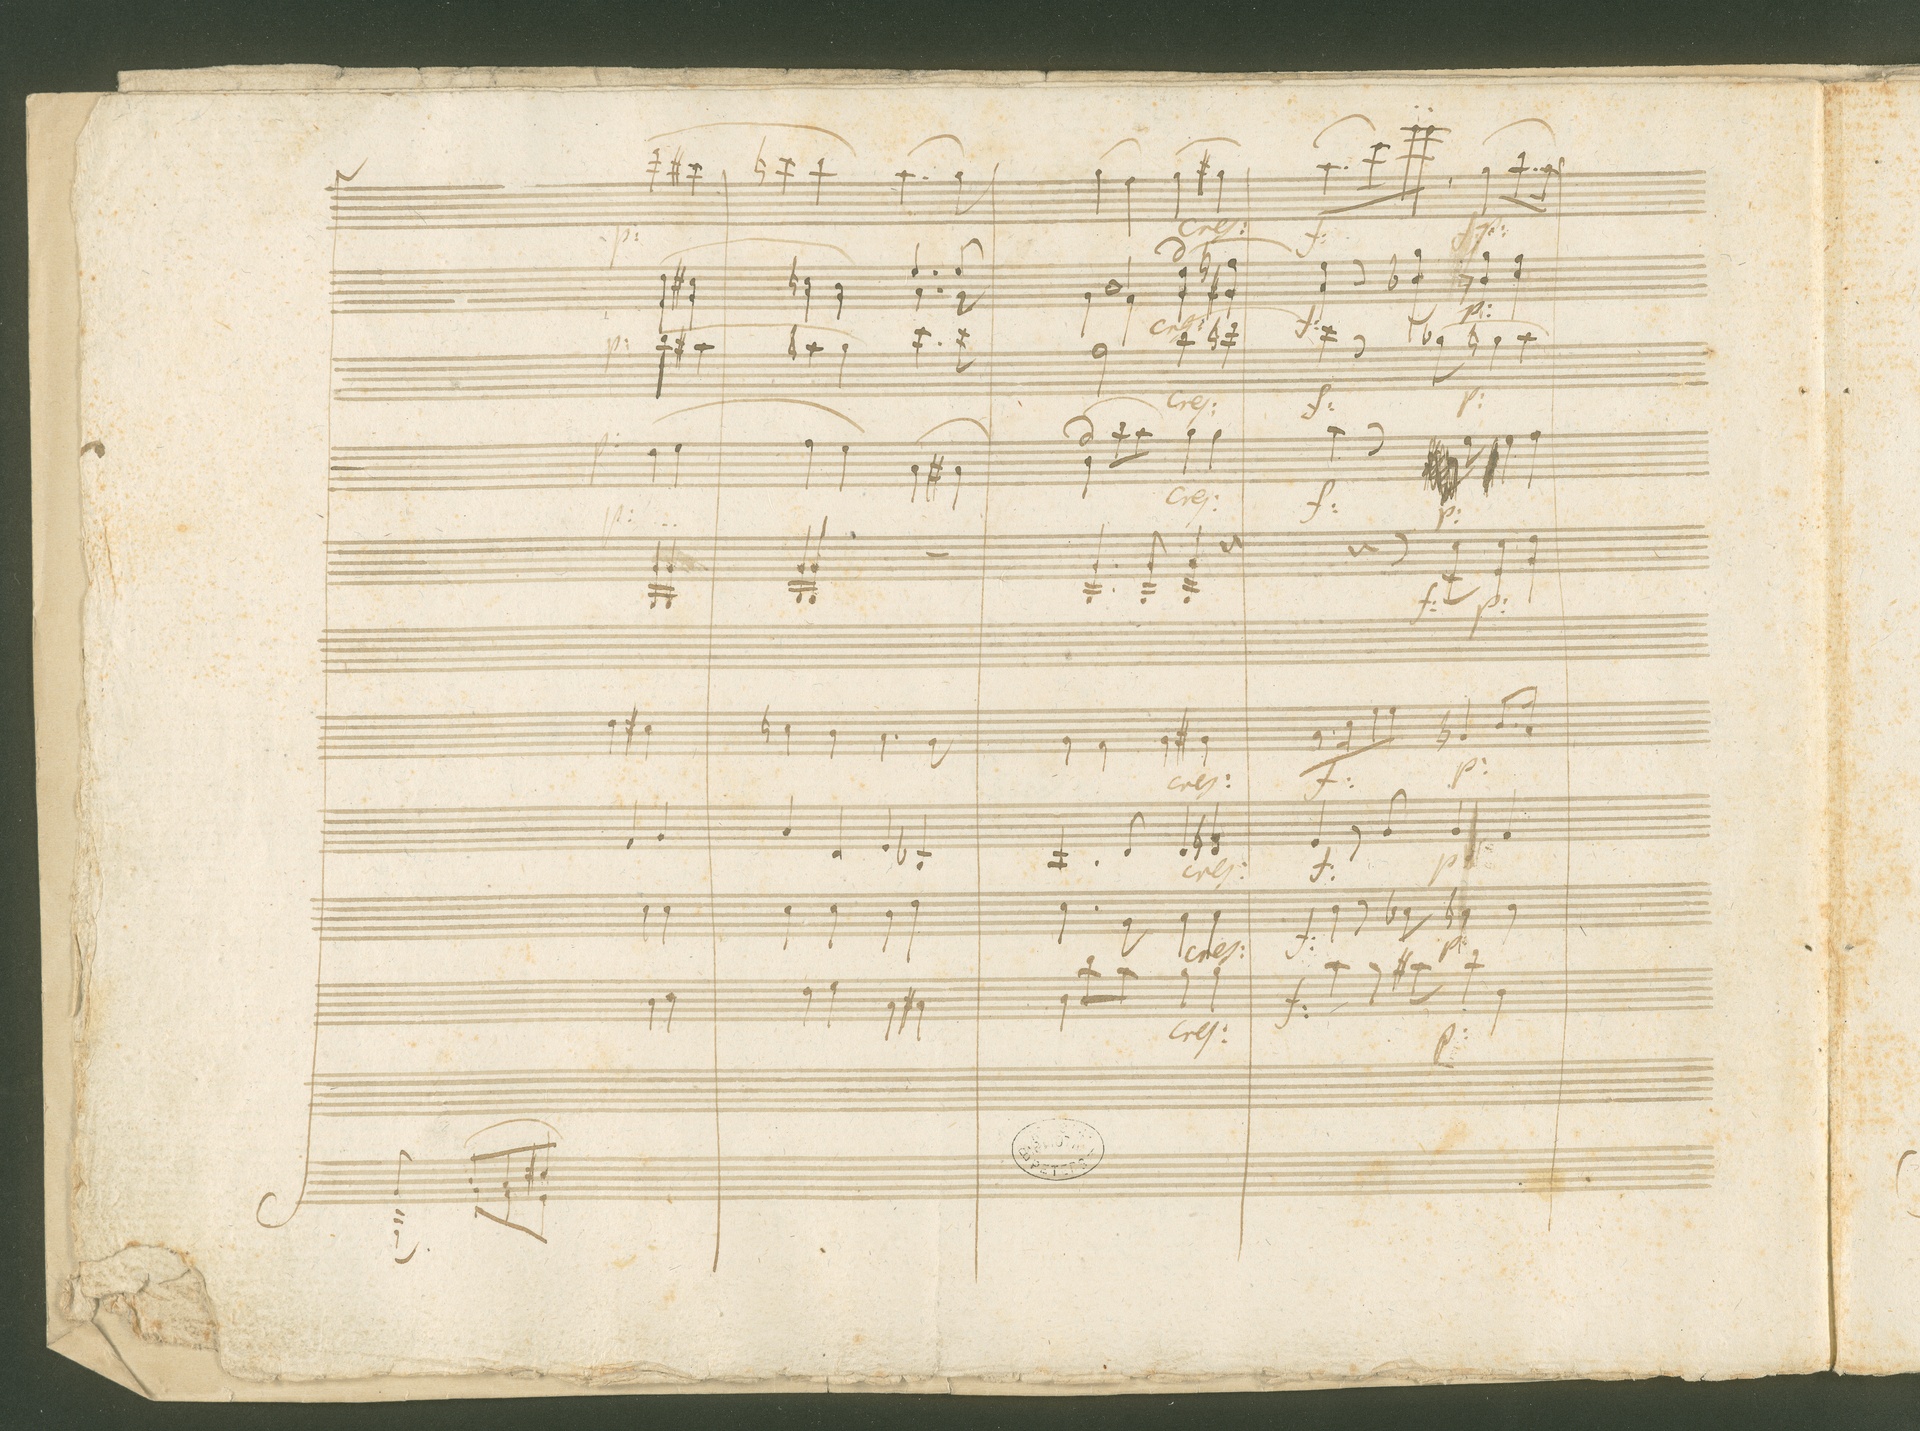 p:
cres: f: fp:
cres: f: p:
p:
cres: f: p:
p:
cres: f: p:
p:
f: p:
cres: f: p:
cres: f: p
cres: f: p:
cres: f: p:
PETERS